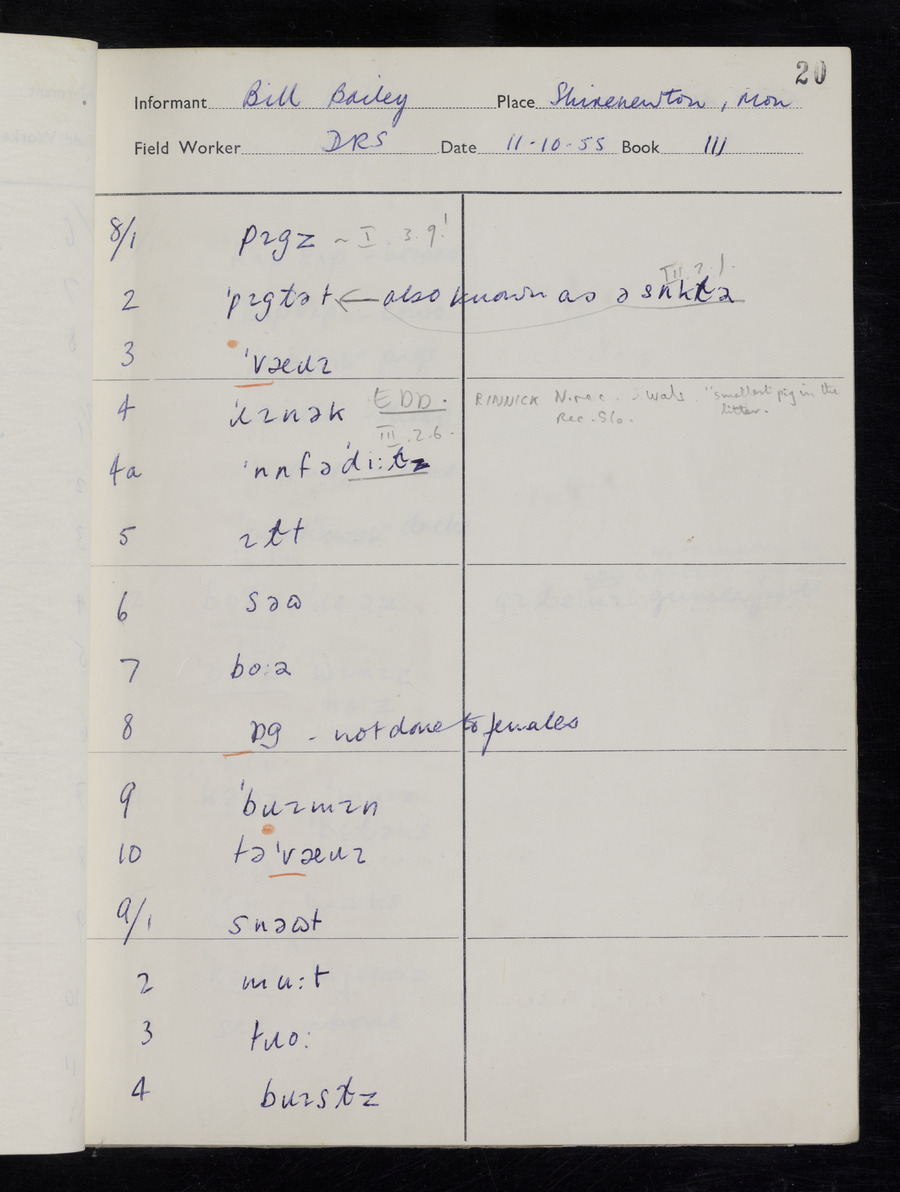 20
Informant Bill Bailey Place Shirenewton, Mon
Field Worker DRS Date 11-10-55 Book III
8/1 pɪgz ~ I. 3. 9!
III. 2. 1.
2 ˈpɪgtət ← also known as ə sʌktə
3 ˈvæɹɪ
4 ˈɹɪnək EDD. RINNICK N. rec. : Wals. "smallest pig in the
Rec. Glo. litter.
III. 2. 6.
4a ˈʌnfəˈdi:tz
5 ɪtt
6 səʊ
7 bo:ə
8 ɒg - not done to females
9 ˈbɹɪmɪn
10 təˈvæɹɪ
9/1 snəʊt
2 mu:t
3 tɹo:
4 bɹɪstz